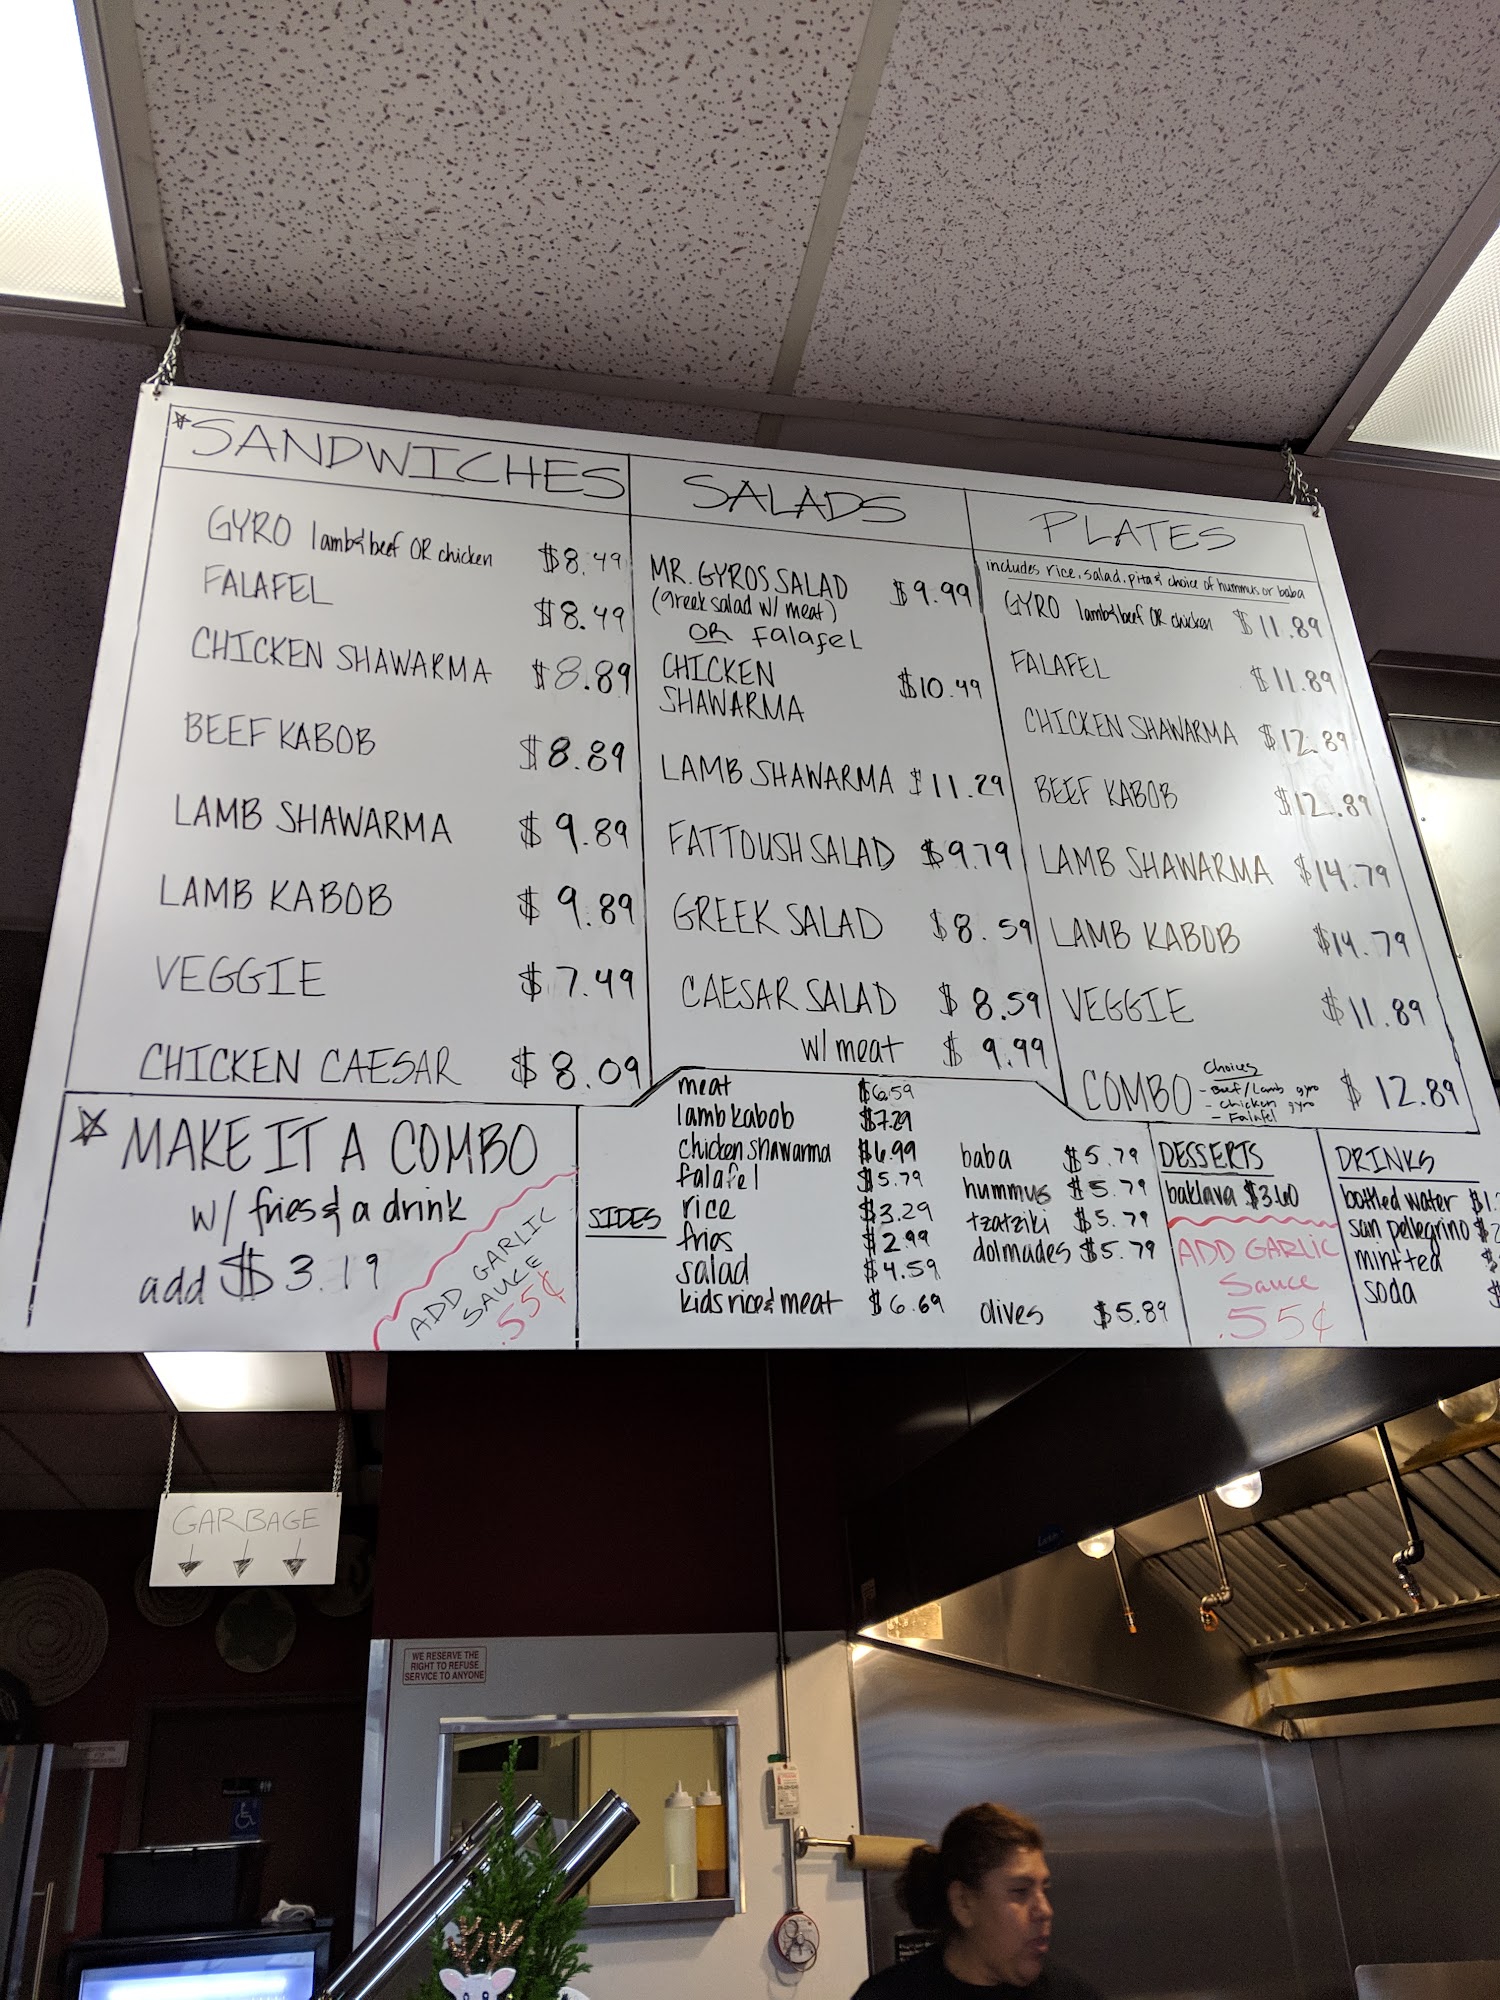 *SANDWICHES
GYRO lamb&beef OR chicken $8.49
FALAFEL $8.49
CHICKEN SHAWARMA $8.89
BEEF KABOB $8.89
LAMB SHAWARMA $9.89
LAMB KABOB $9.89
VEGGIE $7.49
CHICKEN CAESAR $8.09
MAKE IT A COMBO
w/ fries & a drink
add $3.19
ADD GARLIC
SAUCE
.55¢
SALADS
MR. GYROS SALAD $9.99
(greek salad w/ meat)
OR falafel
CHICKEN
SHAWARMA $10.49
LAMB SHAWARMA $11.29
FATTOUSH SALAD $9.79
GREEK SALAD $8.59
CAESAR SALAD $8.59
w/ meat $9.99
PLATES
includes rice, salad, pita & choice of hummus or baba
GYRO lamb&beef OR chicken $11.89
FALAFEL $11.89
CHICKEN SHAWARMA $12.89
BEEF KABOB $12.89
LAMB SHAWARMA $14.79
LAMB KABOB $14.79
VEGGIE $11.89
COMBO $12.89
Choices
- Beef/Lamb gyro
- chicken gyro
- Falafel
SIDES
meat $6.59
lamb kabob $7.29
chicken shawarma $6.99
falafel $5.79
rice $3.29
fries $2.99
salad $4.59
kids rice & meat $6.69
baba $5.79
hummus $5.79
tzatziki $5.79
dolmades $5.79
olives $5.89
DESSERTS
baklava $3.60
ADD GARLIC
Sauce
.55¢
DRINKS
bottled water $1.
san pellegrino $2
mint tea $
soda $
GARBAGE
WE RESERVE THE
RIGHT TO REFUSE
SERVICE TO ANYONE